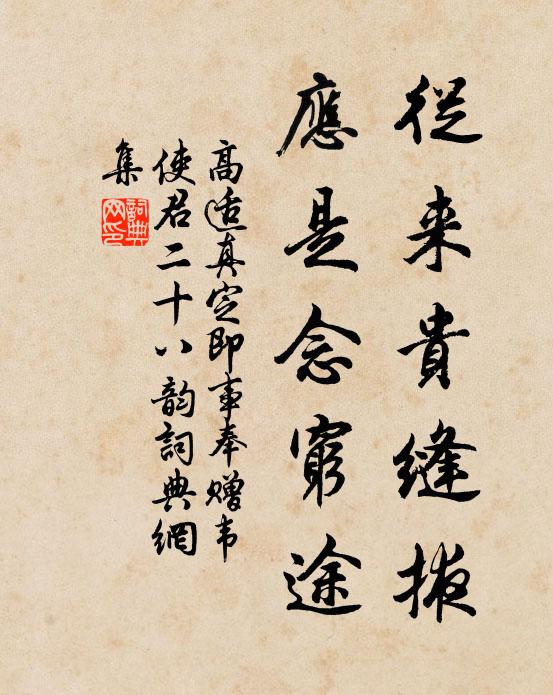 從来貴縫掖
應是念窮途
高适真定即事奉赠韦
使君二十八韵詞典網
集
詞典
网印